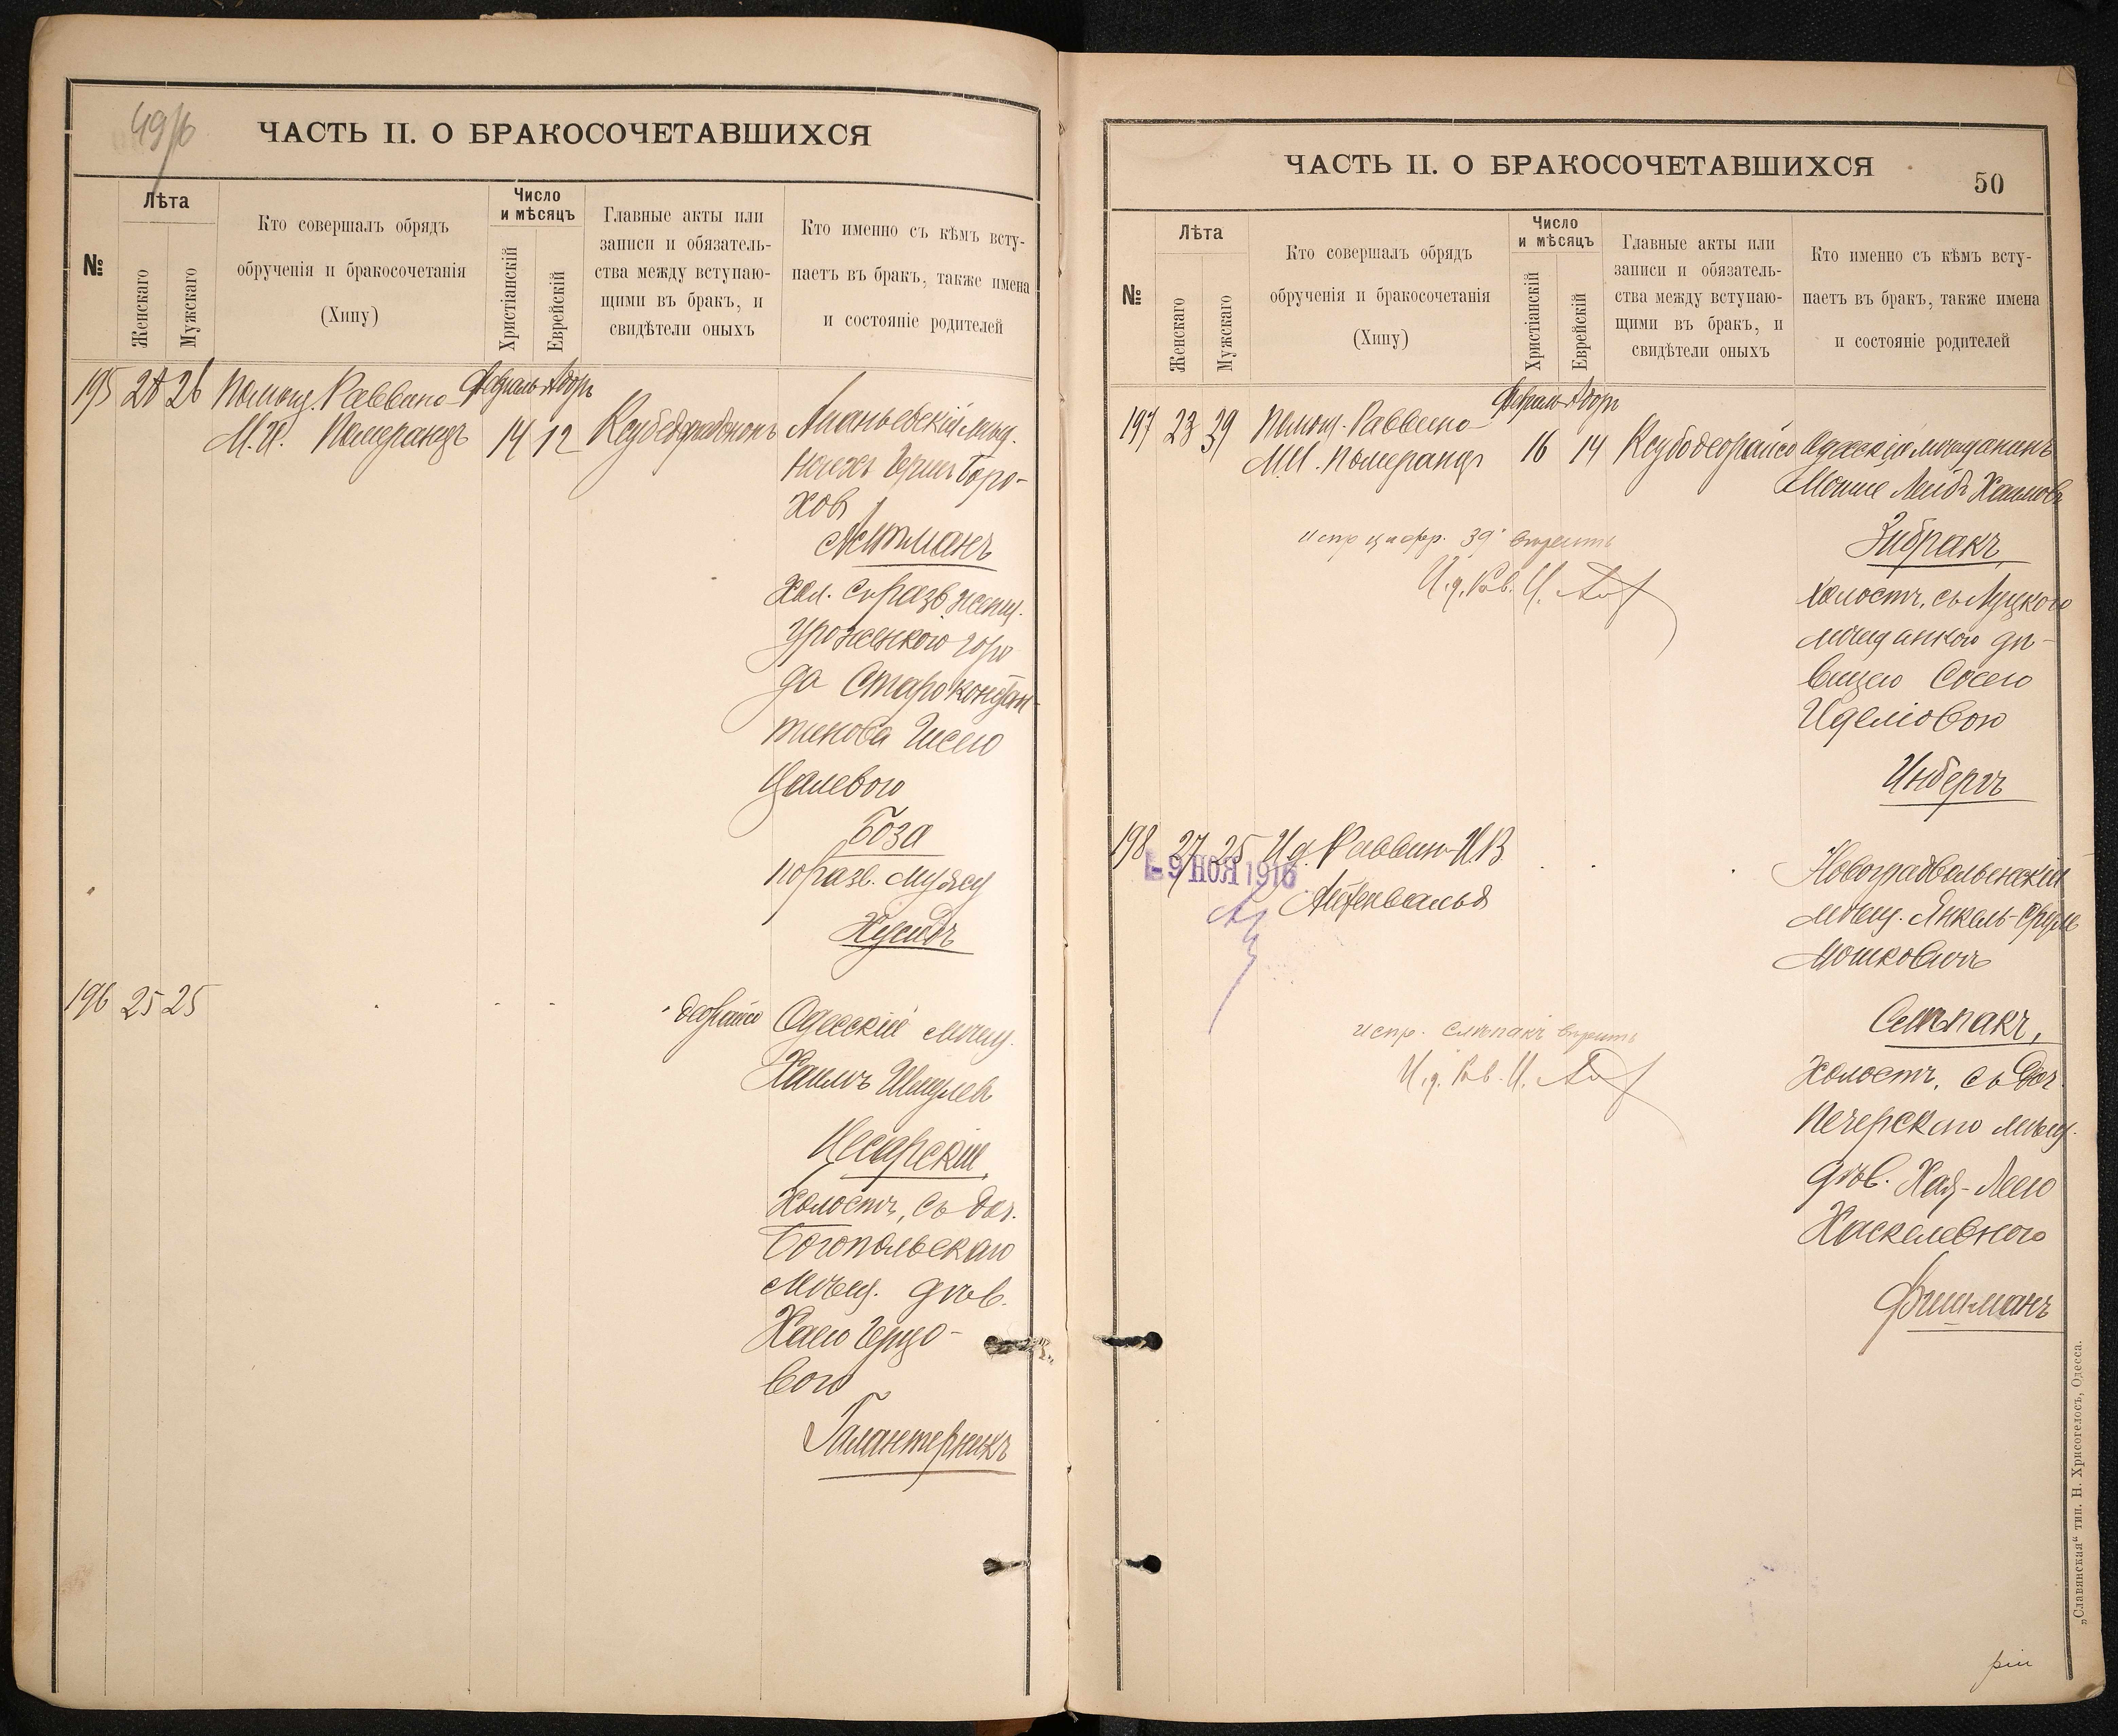 49/6
ЧАСТЬ II. О БРАКОСОЧЕТАВШИХСЯ
№
Лѣта
Женскаго
Мужскаго
Кто совершалъ обрядъ
обрученія и бракосочетанія
(Хипу)
Число
и мѣсяцъ
Христіанскій
Еврейскій
Главные акты или
записи и обязатель-
ства между вступаю-
щими въ бракъ, и
свидѣтели оныхъ
Кто именно съ кѣмъ всту-
паетъ въ бракъ, также имена
и состояніе родителей
195 28 26 Помощ. Раввина Февраль Адоръ
М.И. Померанцъ 14 12
Ананьевскій мѣщ.
Герш Боро-
хов
Литманъ
Хол. съ разв. женщ.
уроженкою горо
да Староконстан-
тинова
Цалевою
Боза
по разв. мужу
Хусидъ
196 25 25 " " " " деорайсо
Одесскій мѣщ.
Хаимъ Шмулев
Цесарскій,
Холостъ, съ доч.
Богопольскаго
мѣщ. дѣв.
Хаею Герцо-
вою
Галантерникъ
ЧАСТЬ II. О БРАКОСОЧЕТАВШИХСЯ
50
№
Лѣта
Женскаго
Мужскаго
Кто совершалъ обрядъ
обрученія и бракосочетанія
(Хипу)
Число
и мѣсяцъ
Христіанскій
Еврейскій
Главные акты или
записи и обязатель-
ства между вступаю-
щими въ бракъ, и
свидѣтели оныхъ
Кто именно съ кѣмъ всту-
паетъ въ бракъ, также имена
и состояніе родителей
197 23 39 Помощ. Раввина Февраль Адоръ
М.И. Померанцъ 16 14 Ксубо деорайсо
Одесскій мѣщанинъ
Моише Лейб Хаимовъ
Зибракъ,
холостъ, съ Луцкою
мѣщанкою дѣ-
вицею Сосею
Иделіовою
Инбергъ
испр цифр. 39 вѣрить
И.д. Рав. И.
198 27 25 И.д. Раввин И.В.
Айхенвальд
- 9 НОЯ 1916
Новоградволынскій
мѣщ. Янкель-Сруль
Мошковичъ
Слѣпакъ,
Холостъ, съ доч.
Печерскаго мѣщ.
дѣв. Хая-Леею
Хаскелевною
Фишманъ
испр. Слѣпакъ вѣрить
И.д. Рав. И.
„Славянская“ тип. Н. Хрисогелосъ, Одесса.